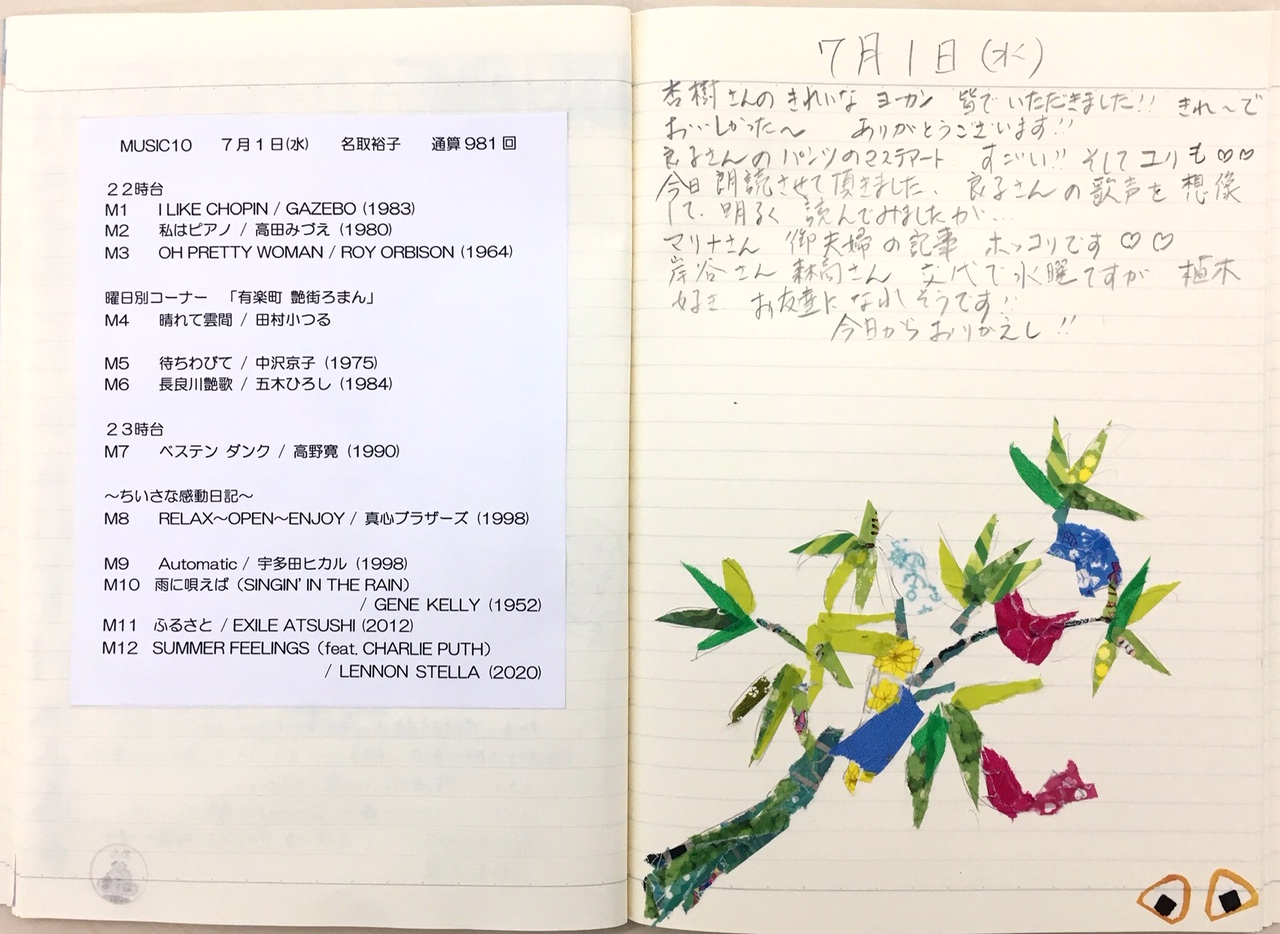 MUSIC10 7月1日(水) 名取裕子 通算981回
22時台
M1 I LIKE CHOPIN / GAZEBO (1983)
M2 私はピアノ / 高田みづえ (1980)
M3 OH PRETTY WOMAN / ROY ORBISON (1964)
曜日別コーナー 「有楽町 艶街ろまん」
M4 晴れて雲間 / 田村小つる
M5 待ちわびて / 中沢京子 (1975)
M6 長良川艶歌 / 五木ひろし (1984)
23時台
M7 ベステン ダンク / 高野寛 (1990)
～ちいさな感動日記～
M8 RELAX～OPEN～ENJOY / 真心ブラザーズ (1998)
M9 Automatic / 宇多田ヒカル (1998)
M10 雨に唄えば (SINGIN' IN THE RAIN)
/ GENE KELLY (1952)
M11 ふるさと / EXILE ATSUSHI (2012)
M12 SUMMER FEELINGS (feat. CHARLIE PUTH)
/ LENNON STELLA (2020)
7月1日(水)
杏樹さんの きれいな ヨーカン 皆で いただきました!! きれ～で
おいしかった～ ありがとうございます!!
良子さんの パンツの すごい!! そして ユリも ♡♡
今日 朗読させて頂きました。 良子さんの歌声を 想像
して、明るく 読んでみましたが…
マリナさん 御夫婦の記事 ホッコリです ♡♡
岸谷さん 森高さん 交代で水曜ですが 植木
好き お友達に なれそうです!!
今日からおりかえし!!